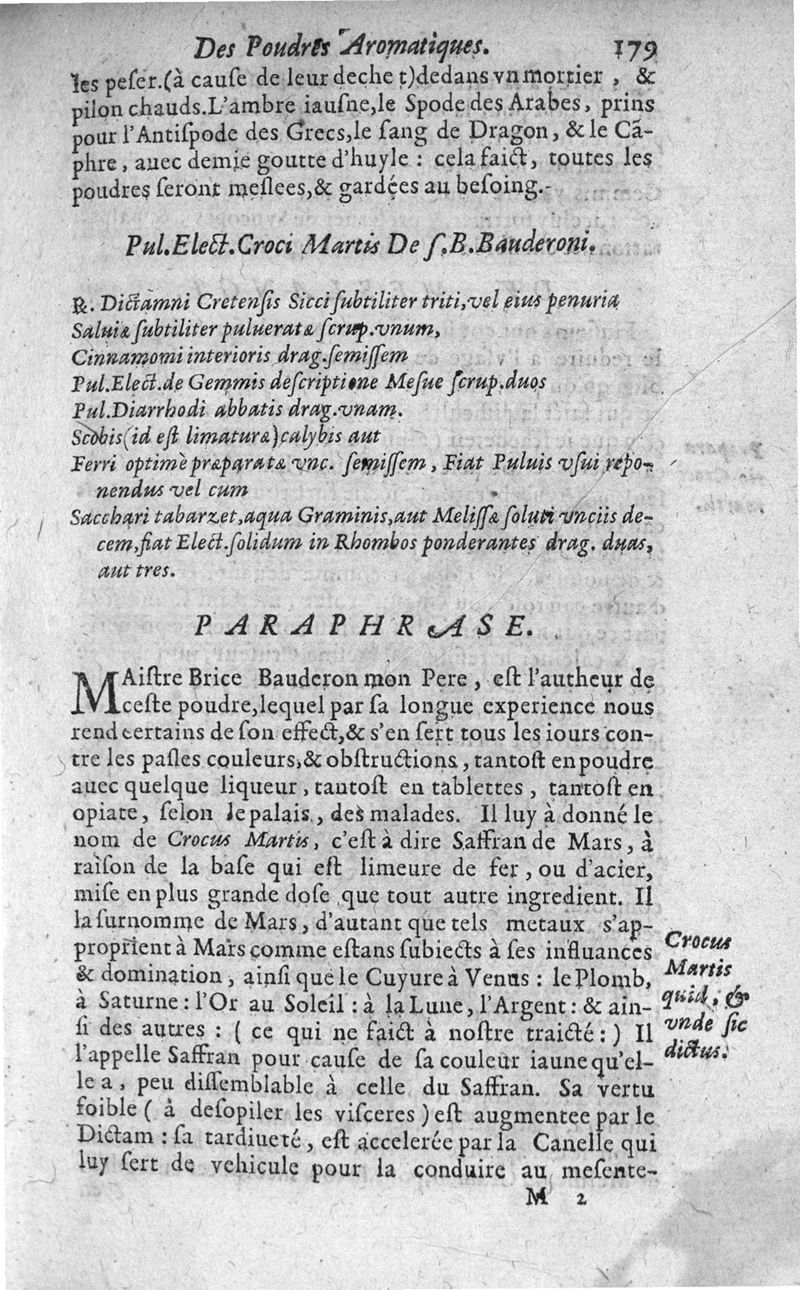 Des Poudres Aromatiques. 179
les peſer.(à cauſe de leur dechet)dedans vn mortier, &
pilon chauds.L'ambre iauſne,le Spode des Arabes, prins
pour l'Antiſpode des Grecs,le ſang de Dragon, & le Cã-
phre, auec demie goutte d'huyle : cela faict, toutes les
poudres ſeront meſlees,& gardées au beſoing.
Pul.Elect.Croci Martis De ſ.B.Bauderoni.
℞. Dictamni Cretenſis Sicci ſubtiliter triti,vel eius penuria
Saluiæ ſubtiliter pulueratæ ſcrup.vnum,
Cinnamomi interioris drag.ſemiſſem
Pul.Elect.de Gemmis deſcriptione Meſue ſcrup.duos
Pul.Diarrhodi abbatis drag.vnam.
Scobis(id eſt limaturæ)calybis aut
Ferri optimè præparatæ vnc. ſemiſſem, Fiat Puluis vſui repo-
nendus vel cum
Sacchari tabarzet,aqua Graminis,aut Meliſſæ ſoluti vnciis de-
cem,fiat Elect.ſolidum in Rhombos ponderantes drag. duas,
aut tres.
PARAPHRASE.
MAiſtre Brice Bauderon mon Pere, eſt l'autheur de
ceſte poudre,lequel par ſa longue experience nous
rend certains de ſon effect,& s'en ſert tous les iours con-
tre les paſles couleurs,& obſtructions, tantoſt en poudre
auec quelque liqueur, tantoſt en tablettes, tantoſt en
opiate, ſelon le palais, des malades. Il luy à donné le
nom de Crocus Martis, c'eſt à dire Saffran de Mars, à
raiſon de la baſe qui eſt limeure de fer, ou d'acier,
miſe en plus grande doſe que tout autre ingredient. Il
la ſurnomme de Mars, d'autant que tels metaux s'ap-
proprient à Mars comme eſtans ſubiects à ſes influances
& domination, ainſi que le Cuyure à Venus : le Plomb,
à Saturne : l'Or au Soleil : à la Lune, l'Argent : & ain-
ſi des autres : ( ce qui ne faict à noſtre traicté : ) Il
l'appelle Saffran pour cauſe de ſa couleur iaune qu'el-
le a, peu diſſemblable à celle du Saffran. Sa vertu
foible ( à deſopiler les viſceres ) eſt augmentee par le
Dictam : ſa tardiueté, eſt accelerée par la Canelle qui
luy ſert de vehicule pour la conduire au meſente-
M 2
Crocus
Martis
quid, &
vnde ſic
dictus.